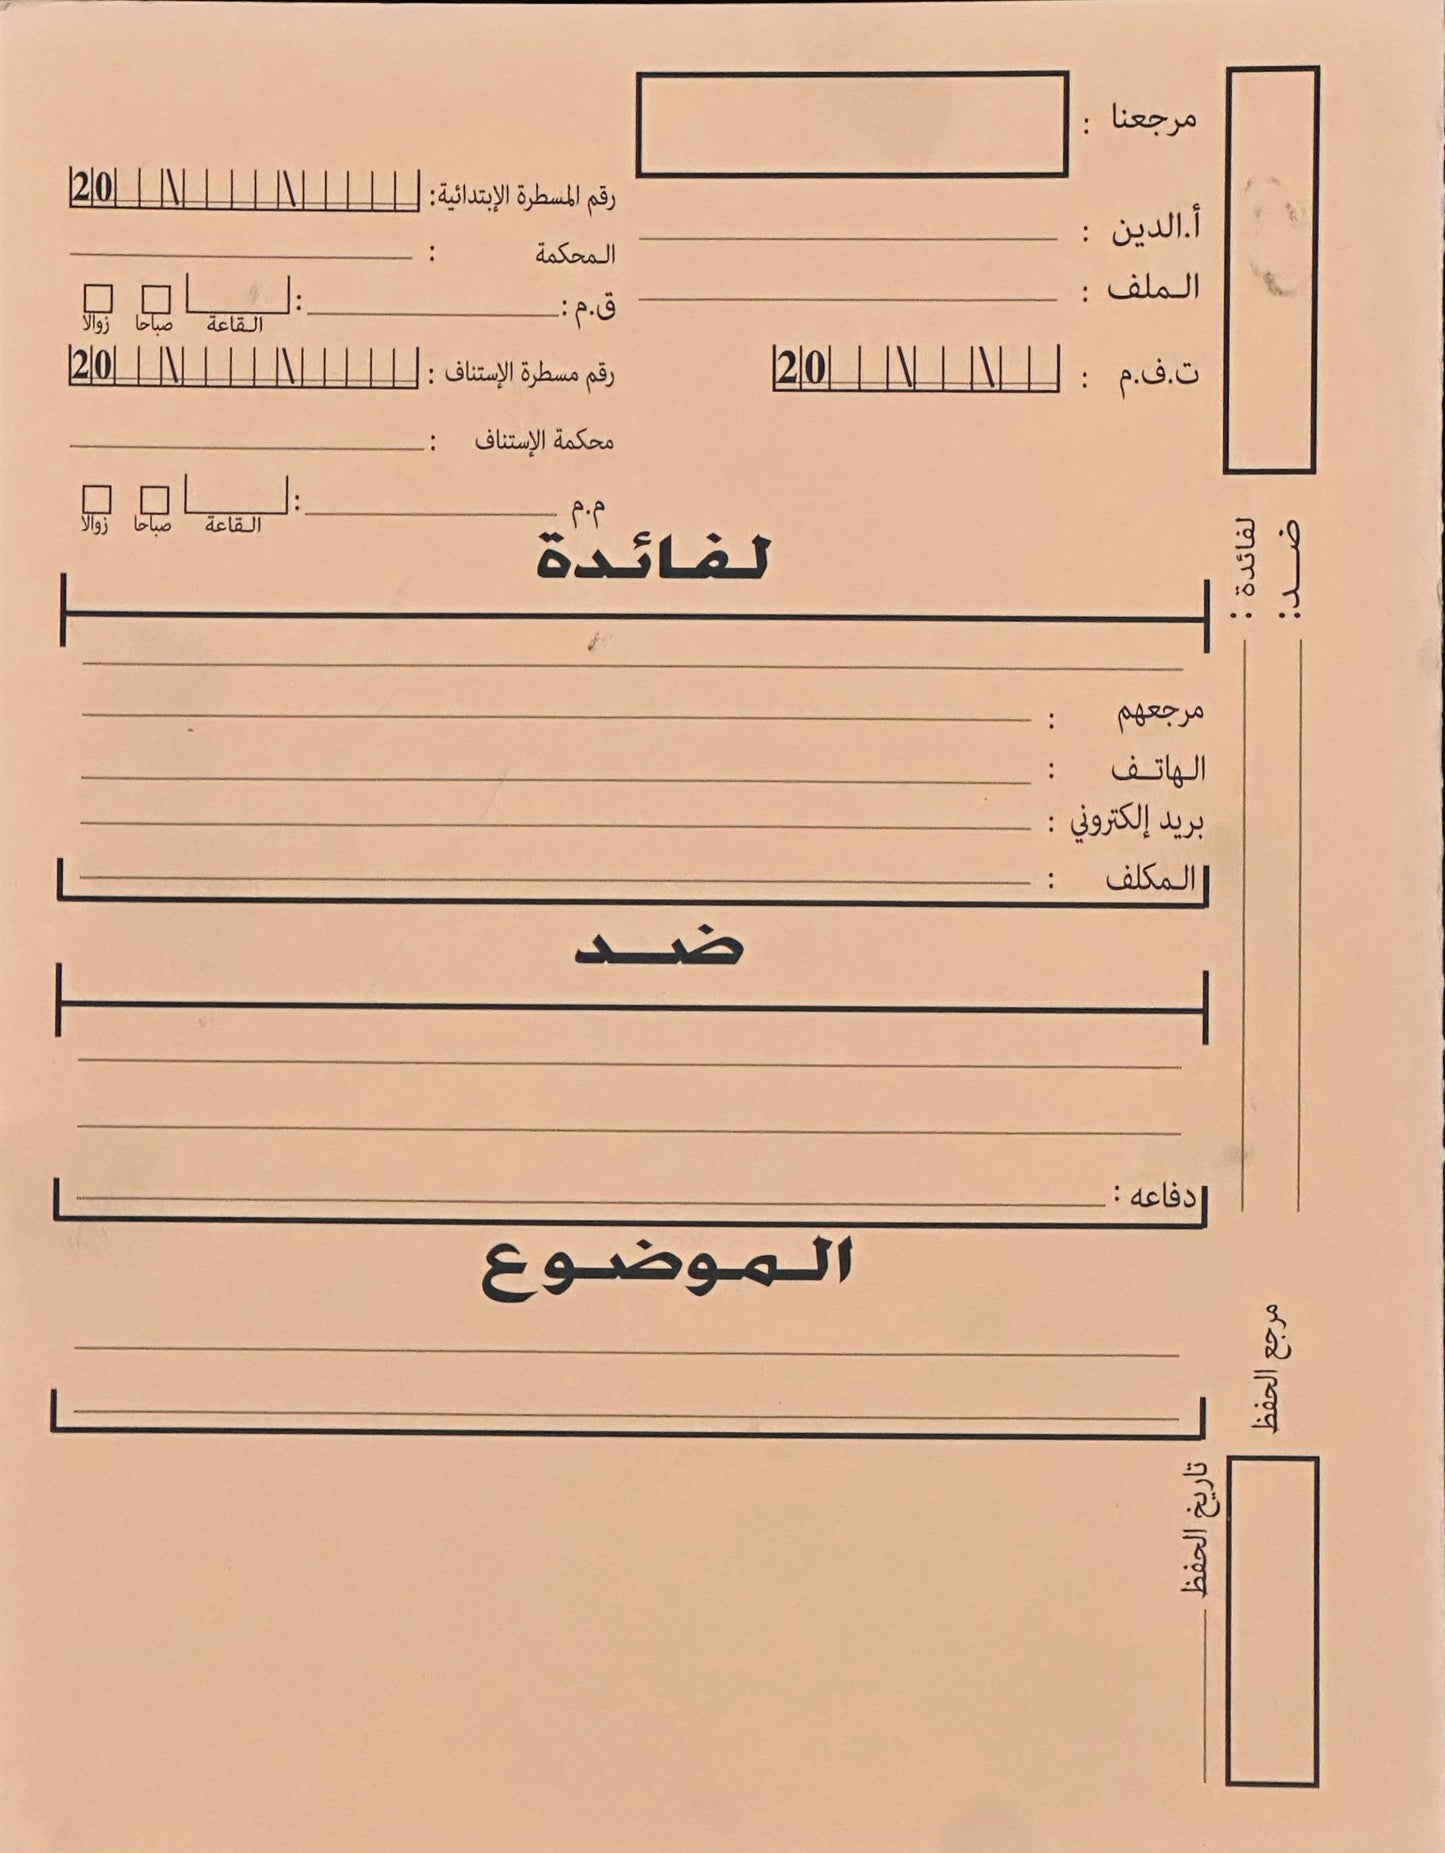 مرجعنا :
أ.الدين :
الملف :
ت.ف.م : 20 \ \
رقم المسطرة الإبتدائية: 20 \ \
المحكمة :
ق.م : :
القاعة صباحا زوالا
رقم مسطرة الإستناف : 20 \ \
محكمة الإستناف :
م.م :
القاعة صباحا زوالا
لفائدة
مرجعهم :
الهاتف :
بريد إلكتروني :
المكلف :
ضد
دفاعه :
الموضوع
ضد:
لفائدة :
مرجع الحفظ
تاريخ الحفظ